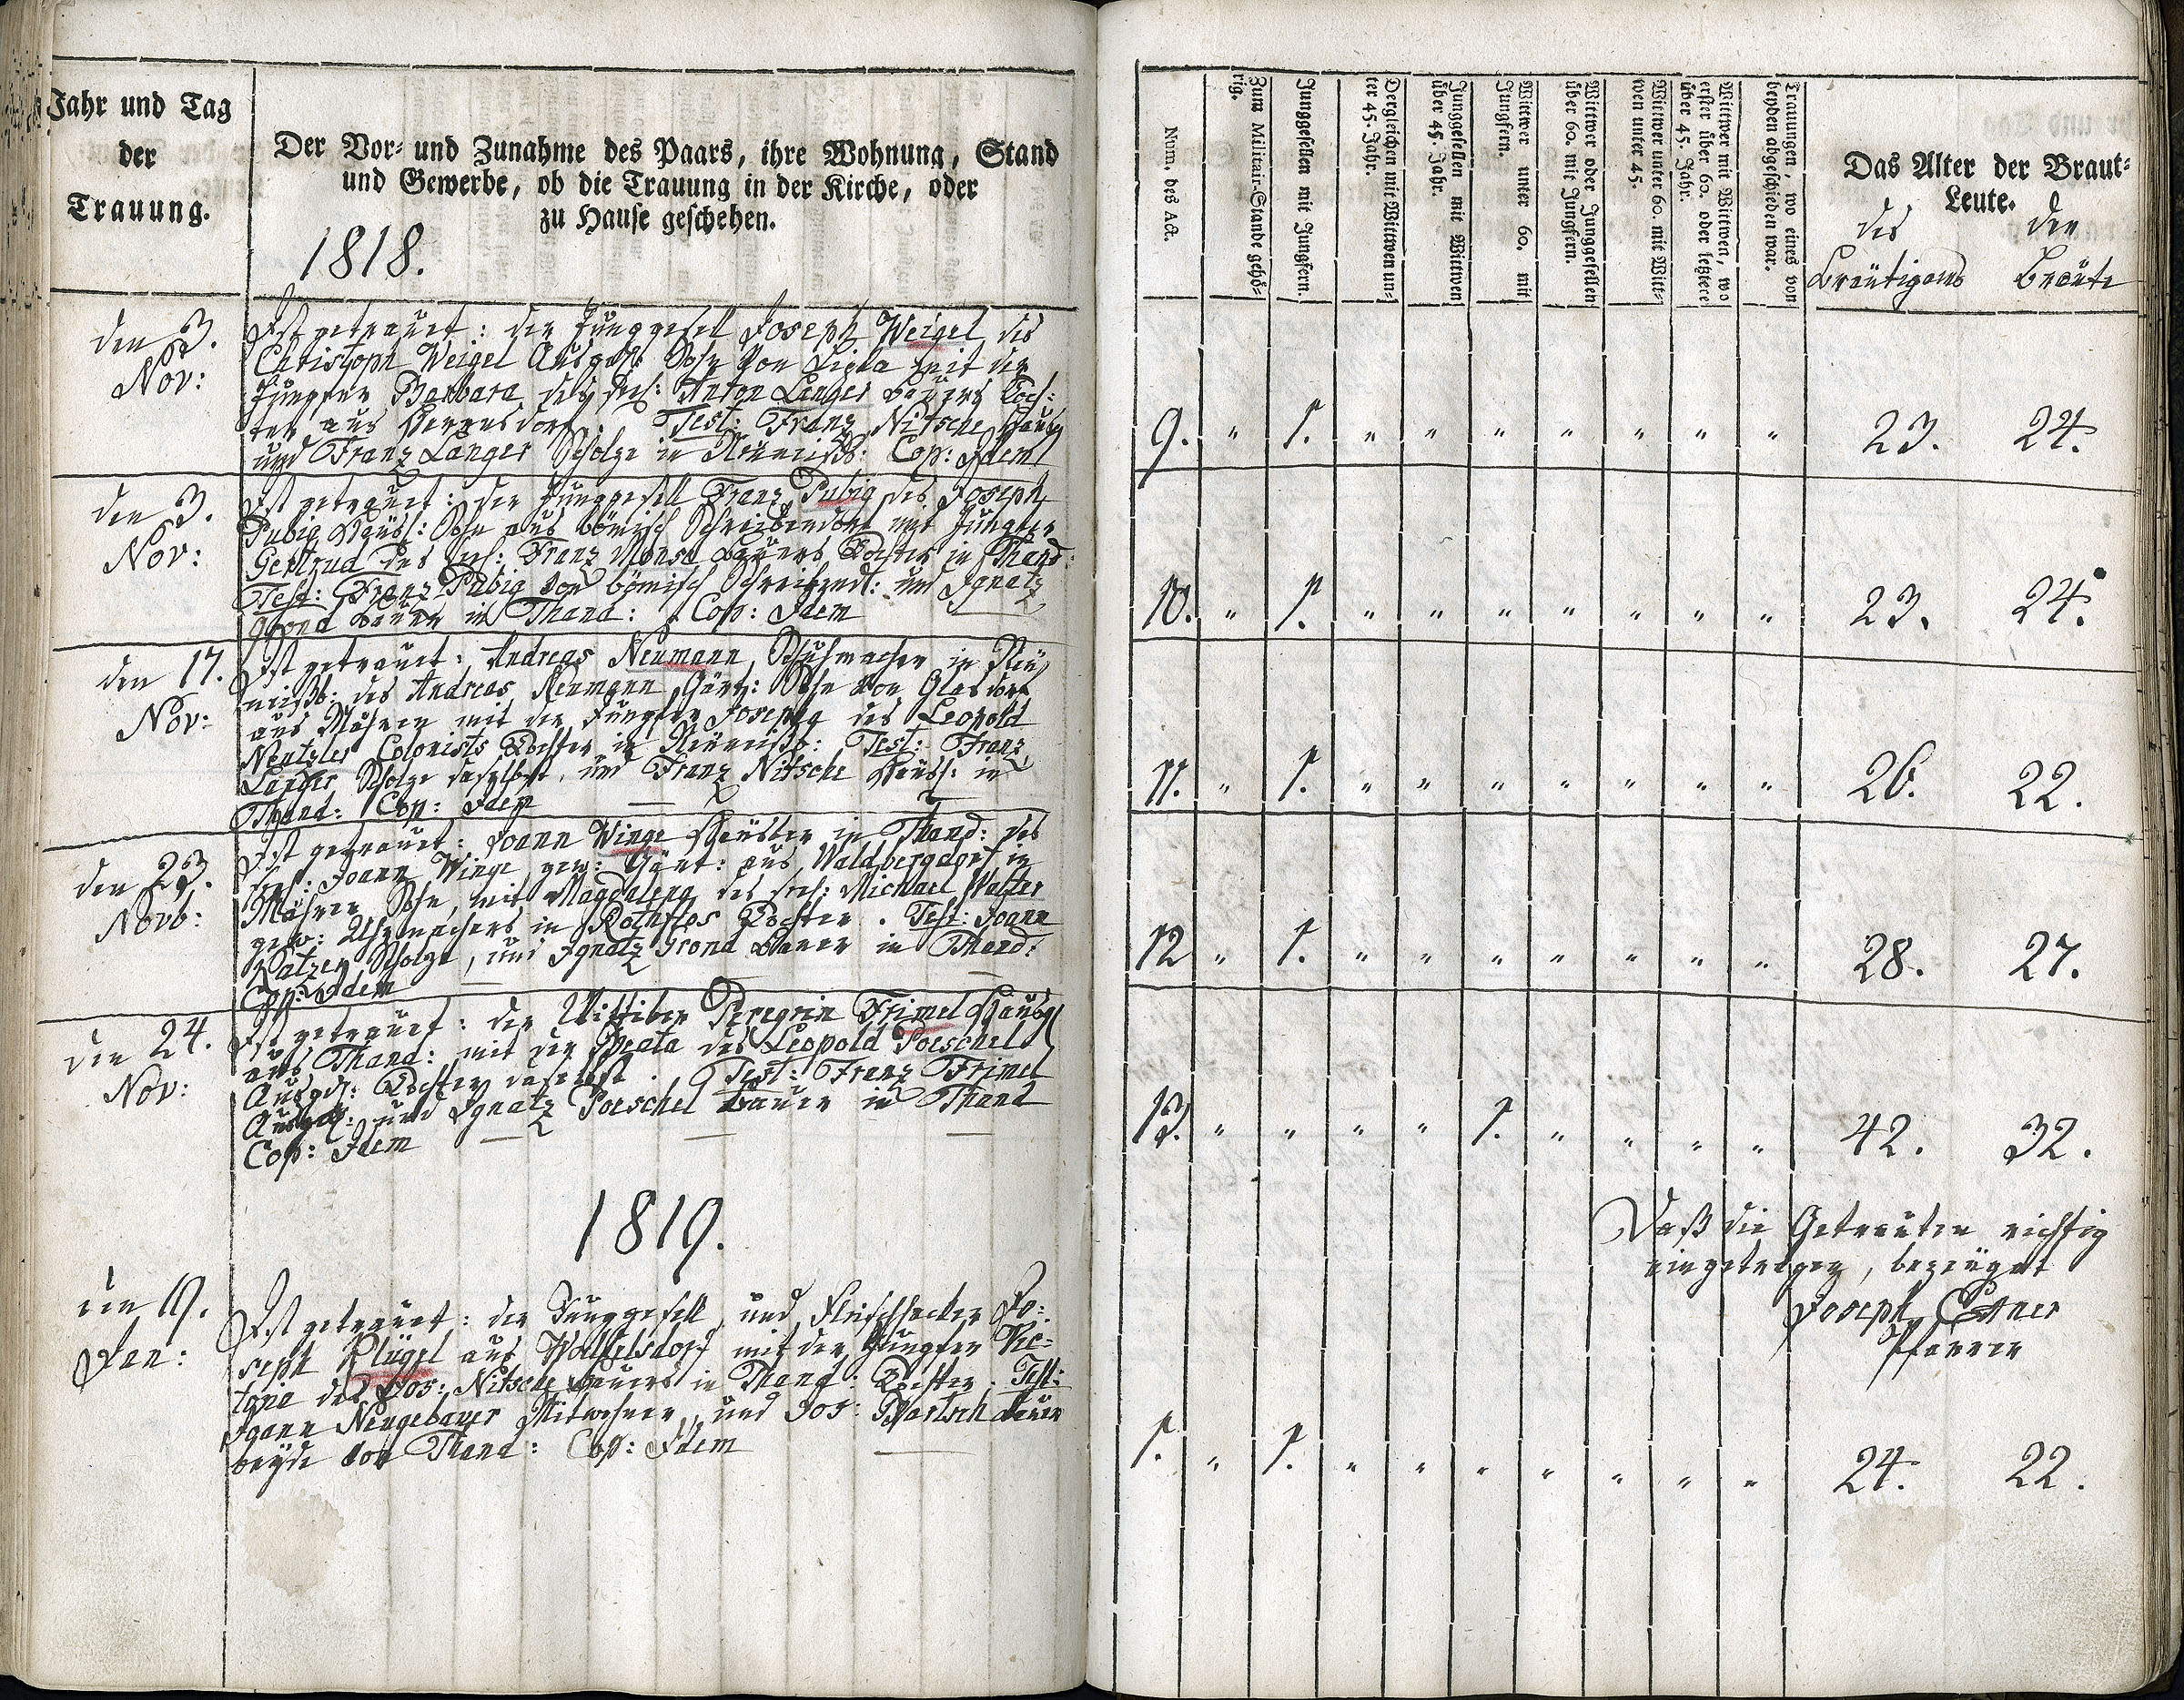 Jahr und Tag
der
Trauung.
Der Vor- und Zunahme des Paars, ihre Wohnung, Stand
und Gewerbe, ob die Trauung in der Kirche, oder
zu Hause geschehen.
1818.
den 3.
Nov:
Ist getrauet: der Junggesell Joseph Weigel des
Christoph Weigel Ausged: Sohn von mit der
Jungfer Barbara des sel: Anton Langer Bauers Toch-
ter aus Test: Franz Nitsche
und Franz Langer Scholze in Cop: Idem
den 3.
Nov:
Ist getrauet: der Junggesell Franz Pubig des Joseph
Pubig Häusl: Sohn aus bömisch Schreibendorf mit Jungfer
Gertrud des sel: Franz Bauers Tochter in Thand:
Test: Franz Pubig von bömisch und Ignatz
Grond Bauer in Thand: Cop: Idem
den 17.
Nov:
Ist getrauet: Andreas Neumann Schuhmacher in Neu-
des Andreas Neumann Gärt: Sohn von
aus Mähren mit der Jungfer Josepha des Leopold
Nentzler Colonists Tochter in Test: Franz
Langer Scholze daselbst, und Franz Nitsche Häusl: in
Thand: Cop: Idem
den 23.
Novb:
Ist getrauet: Joann Winge Häusler in Thand: des
sel: Joann Winge gew: Gärt: aus Waldbergdorf in
Mähren Sohn, mit Magdalena des sel: Michael Walter
gew: Uhrmachers in Rothflos Tochter. Test: Joann
Patzer Scholze, und Ignatz Grond Bauer in Thand:
Cop: Idem
den 24.
Nov:
Ist getrauet: der Wittiber Peregrin Frimel
aus Thand: mit der Beata des Leopold Poeschel
Ausged: Tochter daselbst. Test: Franz Frimel
Ausged: und Ignatz Poeschel Bauer in Thand
Cop: Idem
1819.
den 19.
Jan:
Ist getrauet: der Junggesell und Fleischhacker Jo-
seph Klügel aus Wölfelsdorf mit der Jungfer Vic-
toria des Jos: Nitsche Bauers in Thand: Tochter. Test:
Joann Neugebauer Mitwohner, und Jos: Bartsch Bauer
beyde von Thand: Cop: Idem
Num. des Act.
Zum Militair-Stande gehö-
rig.
Junggesellen mit Jungfern.
Dergleichen mit Wittwen un-
ter 45. Jahr.
Junggesellen mit Wittwen
über 45. Jahr.
Wittwer unter 60. mit
Jungfern.
Wittwer oder Junggesellen
über 60. mit Jungfern.
Wittwer unter 60. mit Witt-
wen unter 45.
Wittwer mit Wittwen, wo
erster über 60. oder letztere
über 45. Jahr.
Trauungen, wo eines von
beyden abgeschieden war.
Das Alter der Braut-
Leute.
des der
Bräutigams Bräute
9. " 1. " " " " " " " 23. 24.
10. " 1. " " " " " " " 23. 24.
11. " 1. " " " " " " " 26. 22.
12 " 1. " " " " " " " 28. 27.
13. " " " " 1. " " " " 42. 32.
Daß die Getrauten richtig
eingetragen, bezeuget
Joseph
Pfarrer
1. " 1. " " " " " " " 24. 22.